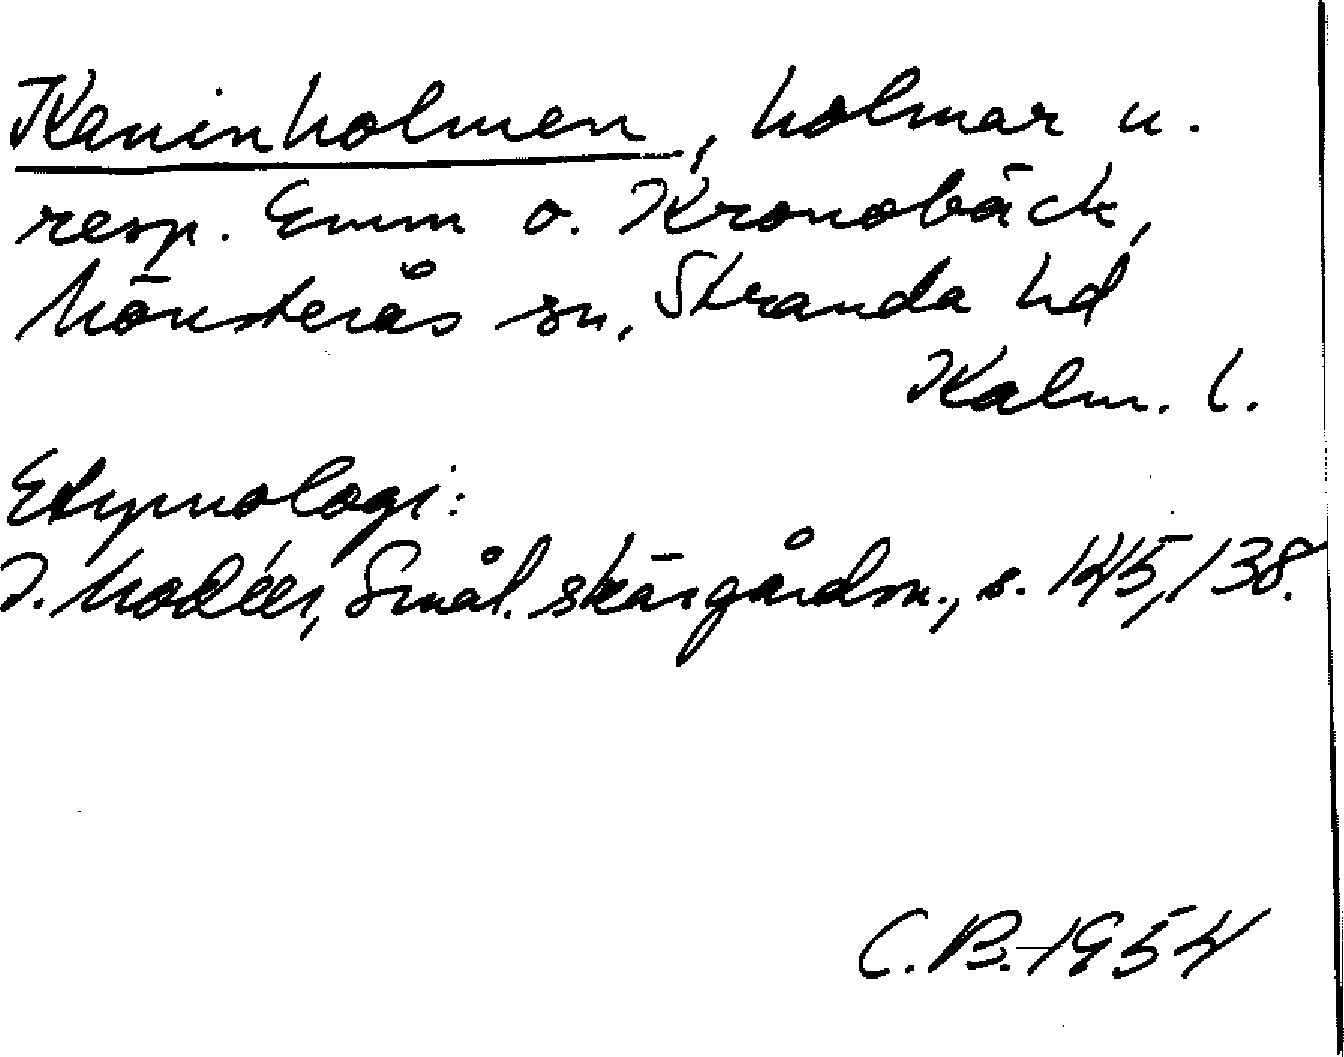 Kaninholmen, holmar u.
resp. Emm o. Kronobäck,
Mönsterås sn, Stranda hd
Kalm. l.
Etymologi:
I. Modéer, Smål. skärgårdsn., s. 145, 138.
C.B. 1954